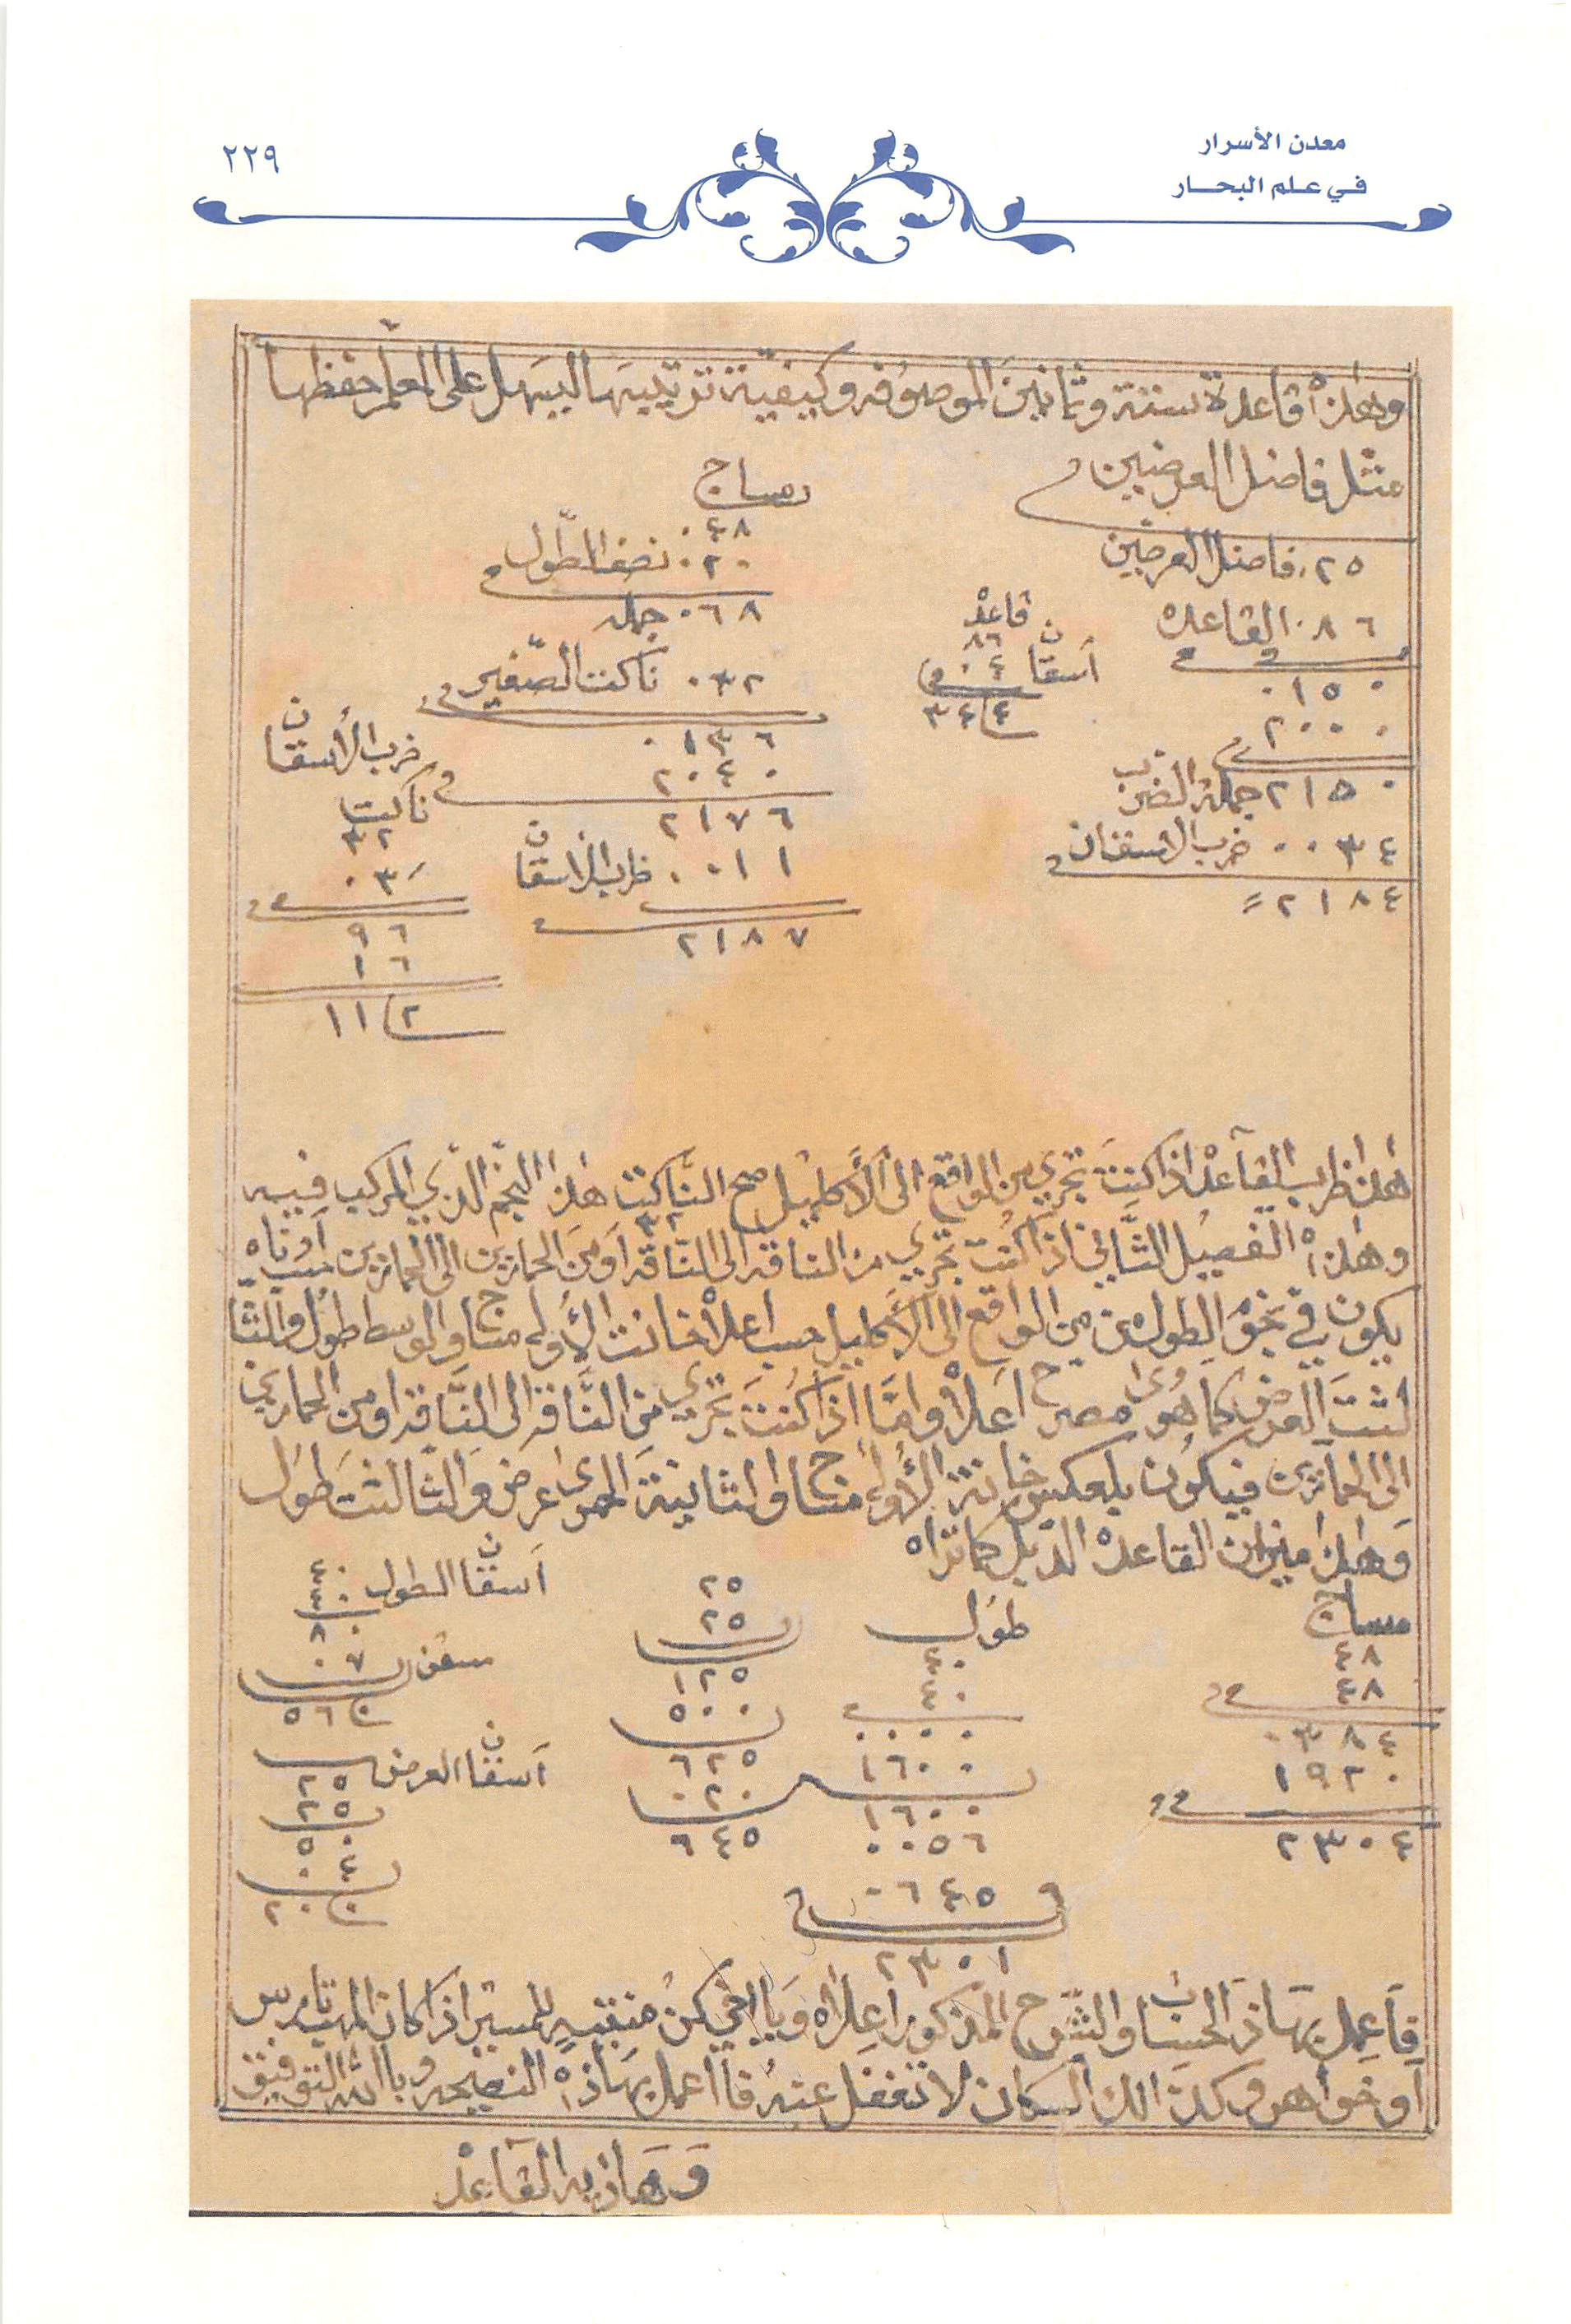 معدن الأسرار
في علم البحار
٢٢٩
وهذا قاعدة ستة وثمانين الموصوفه وكيفية ترتيبها ليسهل على المعلم حفظها
مثل فاضل العرضين
٠٢٥ فاضل العرضين
٠٨٦ القاعده
٠١٥٠
٢٠٠٠
٢١٥٠ جملة الضرب
٠٠٣٤ ضرب الاسقان
٢١٨٤
قاعد
٨٦
اسقان ٠٤
٣٤٤
مساج
٠٤٨
٠٢٠ نصف الطول
٠٦٨ جمله
٠٣٢ ناكت الصغير
٠١٣٦
٢٠٤٠
٢١٧٦
٠٠١١ ظرب الاسقان
٢١٨٧
ضرب الأسقان
ناكت
٣٢
٠٣
٩٦
١٦
١١٢
هذا ظرب القاعد اذا كنت تجري من الواقع الى الأكليل صح الناكت ٣٢ هذا النجم الذي المركب فيه
وهذه الفصيل الثاني اذا كنت تجري من الناقه الى الناقه او من الحمارين الى الحمارين
يكون في نجوم الطول من الواقع الى الأكليل اعلا خانت الأوله مساج والوسط طول والثا
لثت العرض كما هو اعلا واما اذا كنت تجري من الناقه الى الناقه او من الحمارين
الى الحمارين فيكون بلعكس خانة الأوله مساج والثانية المجرى عرض والثالثت طول
وهذا ميزان القاعده الذيل كما تراه
مساج
٤٨
٤٨
٠٣٨٤
١٩٢٠
٢٣٠٤
طول
٤٠
٤٠
٠٠٠٠
١٦٠٠
١٦٠٠
٠٠٥٦
٠٦٤٥
٢٣٠١
٢٥
٢٥
١٢٥
٥٠٠
٦٢٥
٠٢٠
٦٤٥
اسقان الطول ٤٠
٤٠
٨٠
سقن ٠٧
٥٦٠
اسقان العرض
٢٥
٢٥
٥٠
٠٤
٢٠٠
فاعمل بهاذا الحساب والشرح المذكور اعلاه ويا اخي كن منتبه للمسير اذا كان المهب تارس
او خواهر وكذالك السكان لا تغفل عنه فاعمل بهاذه النصيحه وبالله التوفيق
وهاذيه القاعد